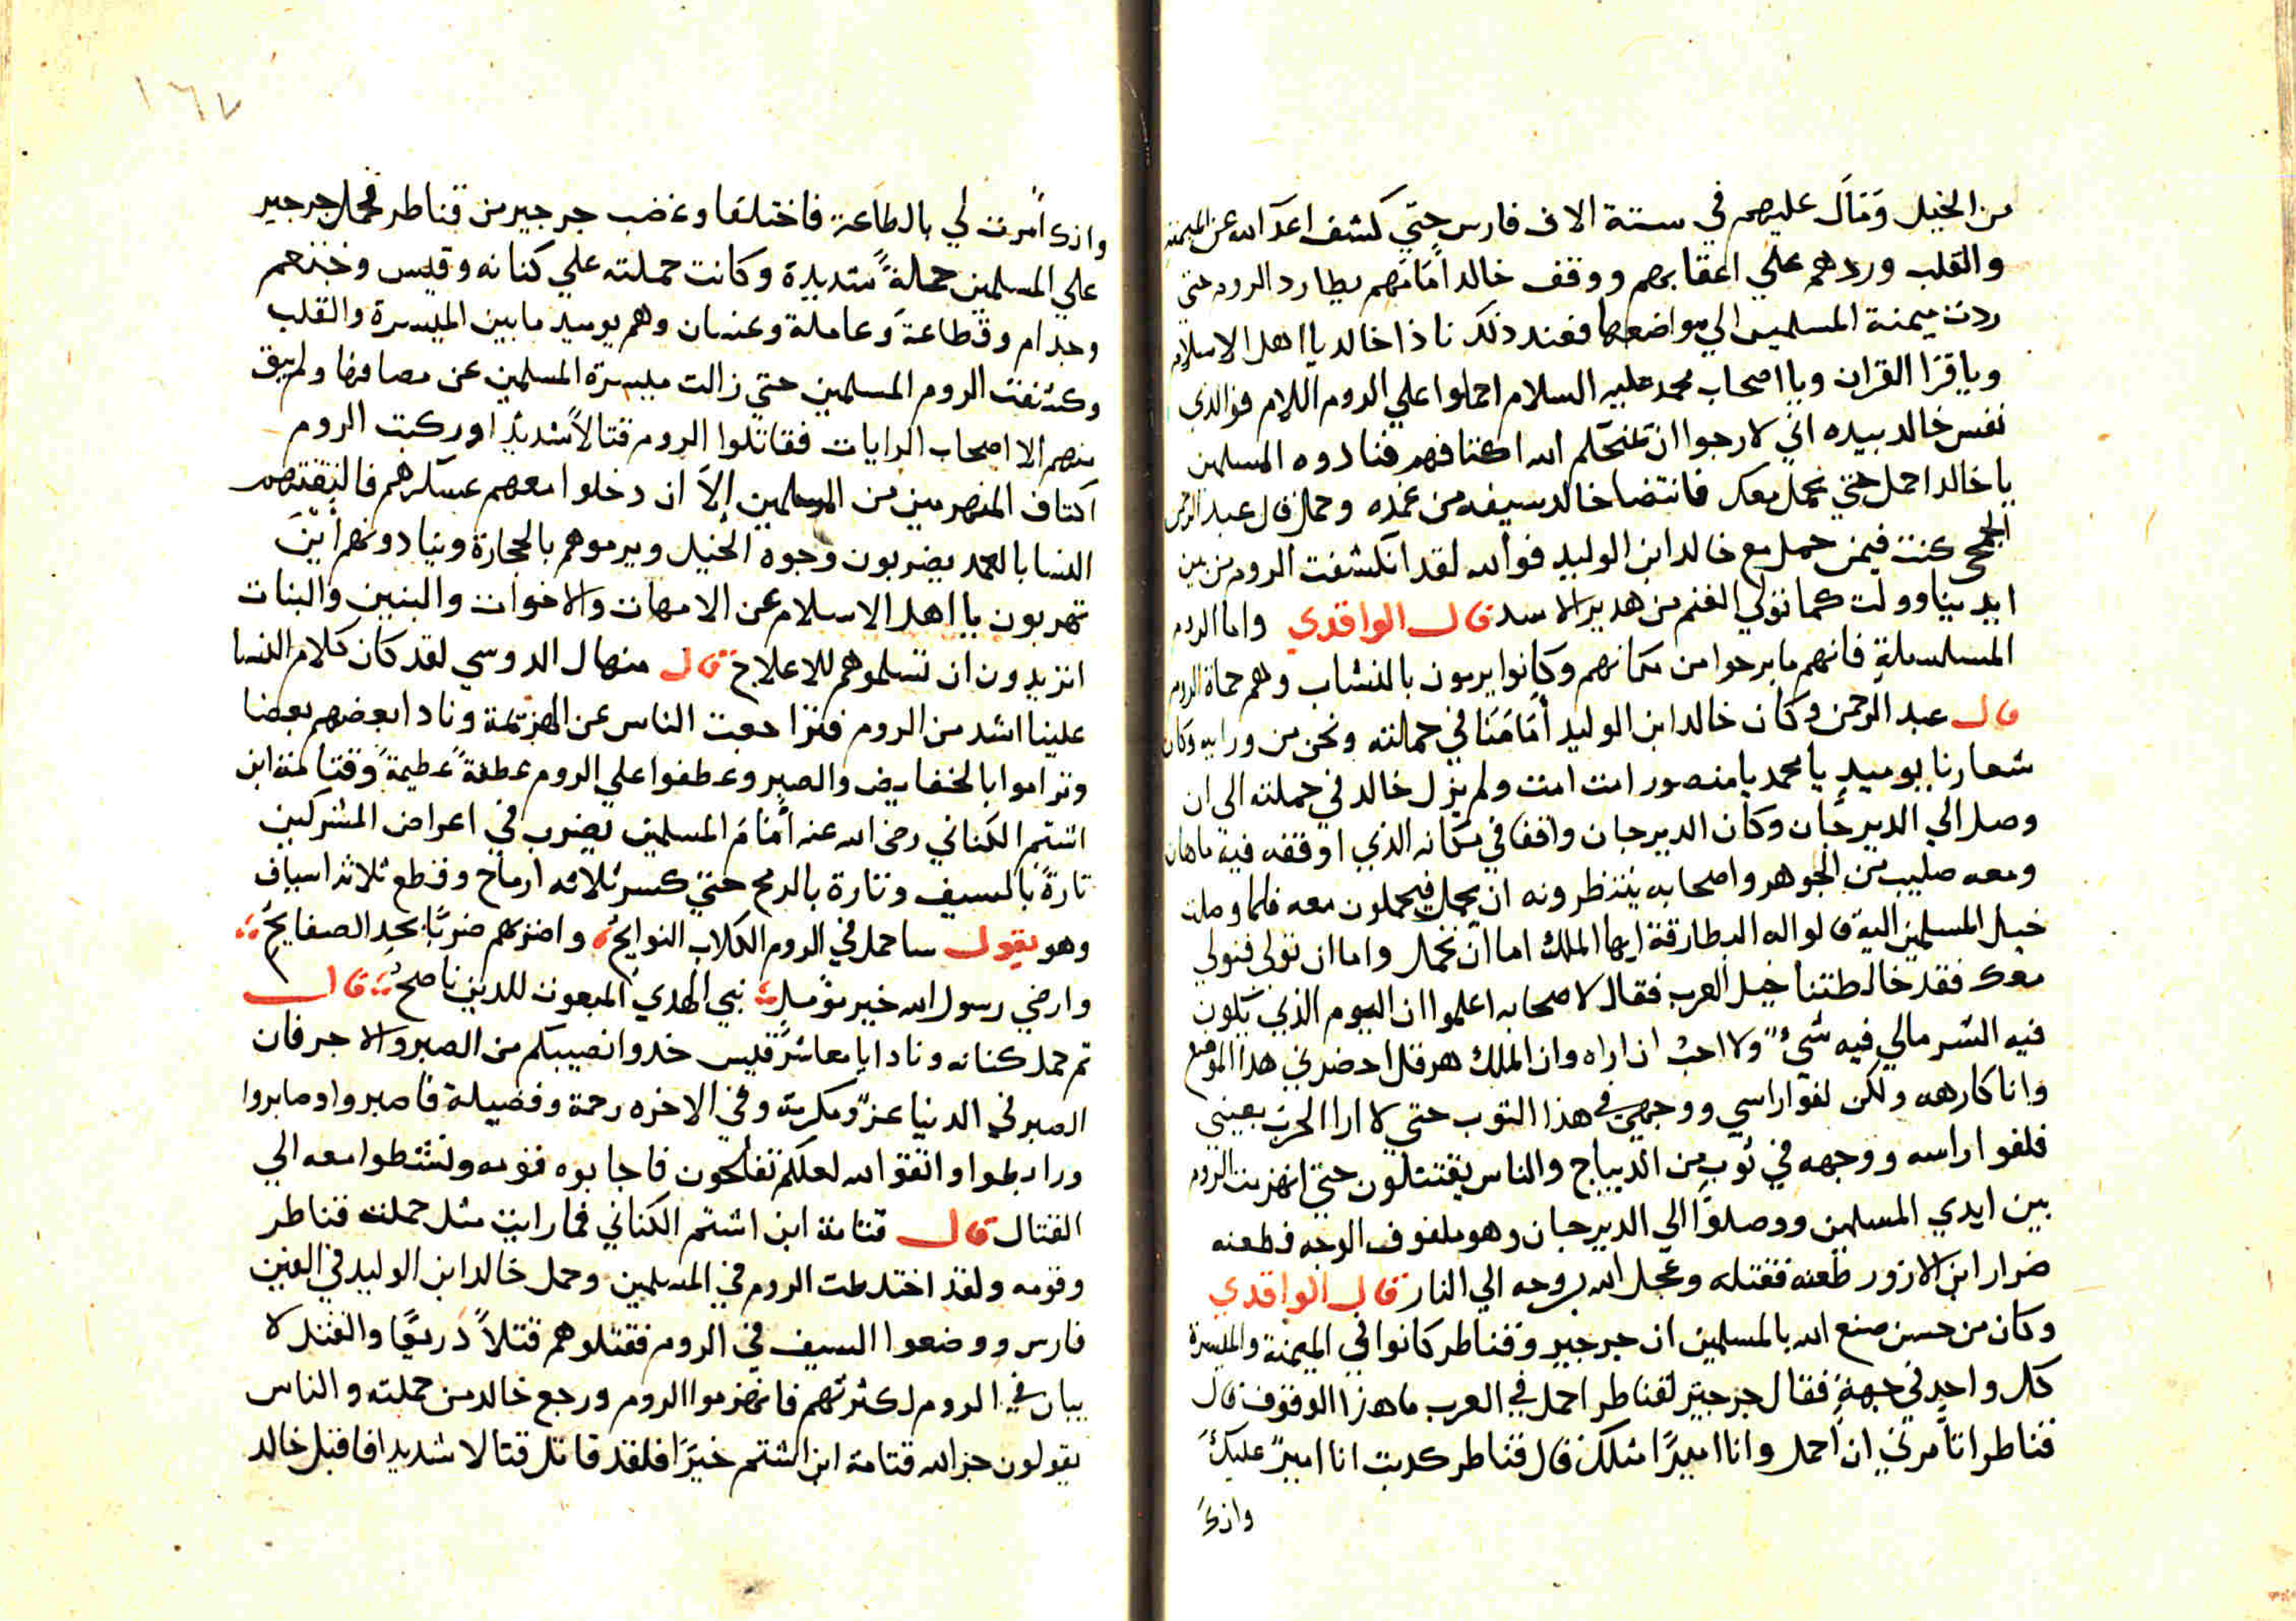 من الخيل وَمَالَ عليهم في ستة الاف فارس حتي كشف اعدآ الله عن الميمنه
والقلب وردهم علي اعقابهم ووقف خالد اَمَامهم يطارد الروم حتي
ردت ميمنة المسلمين الي مواضعها فعند ذلك نادا خالد يا اهل الاسلام
وياقرا القران ويا اصحاب محمد عليه السلام احملوا علي الروم اللام فوالدي
نفس خالد بيده اني لارجوا ان يمنحكم الله اكتافهم فنادوه المسلمين
يا خالد احمل حتي نحمل معك فانتضا خالد سيفه من غمده وحمل قال عبد الرحمن
الجمحي كنت فيمن حمل مع خالد ابن الوليد فوالله لقد انكشفت الروم من بين
ايدينا وولت كما تولي الغنم من هدير الاسد قال الواقدي واما الروم
المسلسلة فانهم ما برحوا من مكانهم وكانوا يرمون بالنشاب وهم حماة الروم
قال عبد الرحمن وكان خالد ابن الوليد اَمَامَنَا في حملته ونحن من ورايه وكان
شعارنا يوميدٍ يا محمد يا منصور امت امت ولم يزل خالد في حملته الى ان
وصل الي الديرجان وكان الديرجان واقفا في مكانه الذي اوقفه فيه ماهان
ومعه صليب من الجوهر واصحابه ينتظرونه ان يحمل فيحملون معه فلما وصلت
خيل المسلمين اليه قالوا له البطارقة ايها الملك اما ان نحمل واما ان نولي فنولي
معك فقد خالطتنا خيل العرب فقال لاصحابه اعلموا ان اليوم الذي يكون
فيه الشر مالي فيه شيءٌ ولا احبُّ ان اراه وان الملك هرقل احضرني هذا الموضع
وانا كارهه ولكن لفوا راسي ووجهي في هذا التوب حتي لا ارا الحرب بعيني
فلفوا راسه ووجهه في ثوب من الديباج والناس يقتتلون حتي انهزمت الروم
بين ايدي المسلمين ووصلوا الي الديرجان وهو ملفوف الوجه فطعنه
ضرار ابن الازور طعنه فقتله وعجل الله بروحه الي النار قال الواقدي
وكان من حسن صنع الله بالمسلمين ان جرجير وقناطر كانوا في الميمنة والميسرة
كل واحد في جهةٍ فقال جرجير لقناطر احمل في العرب ما هذا الوقوف قال
قناطر اتأمرني ان احمل وانا اميرًا مثلك قال قناطر كدبت انا اميرٌ عليك
واذكَ
١٦٧
واذك اُمرت لي بالطاعة فاختلفا وغضب جرجير من قناطر فحمل جرجير
علي المسلمين حملةً شديدة وكانت حملته علي كنانه وقيس وخثعم
وجدام وقطاعة وعاملة وغسان وهم يوميد ما بين الميسرة والقلب
وكشفت الروم المسلمين حتي زالت ميسرة المسلمين عن مصافها ولم يبق
منهم الا اصحاب الرايات فقاتلوا الروم قتالاً شديدًا وركبت الروم
اكتاف المنهزمين من المسلمين إلاَ ان دخلوا معهم عسكرهم فالتقتهم
النسا بالعمد يضربون وجوه الخيل ويرموهم بالحجارة وينادونهم أيْنَ
تهربون يا اهل الاسلام عن الامهات والاخوات والبنين والبنات
اتريدون ان تسلموهم للاعلاج قال منهال الدوسي لقد كان كلام النسا
علينا اشد من الروم فتراجعت الناس عن الهزيمة ونادا بعضهم بعضا
وتراموا بالخفايض والصبر وعطفوا علي الروم عطفةً عظيمةً وقتامة ابن
اشتم الكناني رضي الله عنه أمَامَ المسلمين يضرب في اعراض المشركين
تارةً بالسيف وتارة بالرمح حتي كسر ثلاثه ارماح وقطع ثلاثه اسياف
وهو يقول ساحمل في الروم الكلاب النوابح واضربهم ضربًا بحد الصفايح
وارضي رسول الله خير مؤملٍ نبي الهدي المبعوث للدين ناصح قال
ثم حمل كنانه ونادا يا معاشر قيس خدوا نصيبكم من الصبر والاجر فان
الصبر في الدنيا عزّ ومكرمة وفي الاخره رحمة وفضيلة فاصبروا وصابروا
ورابطوا واتقوا الله لعلكم تفلحون فاجابوه قومه ونشطوا معه الي
القتال قال قتامة ابن اشتم الكناني فما رايت مثل حملت قناطر
وقومه ولقد اختلطت الروم في المسلمين وحمل خالد ابن الوليد في الفين
فارس ووضعوا السيف في الروم فقتلوهم قتلاً دريعًا والقتل لا
يبان في الروم لكثرتهم فانهزموا الروم ورجع خالد من حملته والناس
يقولون جزالله قتامة ابن اشتم خيرًا فلقد قاتل قتالا شديدا فاقبل خالد